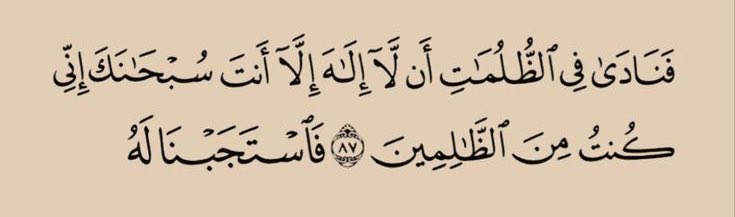 فَنَادَىٰ فِي ٱلظُّلُمَٰتِ أَن لَّآ إِلَٰهَ إِلَّآ أَنتَ سُبْحَٰنَكَ إِنِّي
كُنتُ مِنَ ٱلظَّٰلِمِينَ ۝٨٧ فَٱسْتَجَبْنَا لَهُۥ